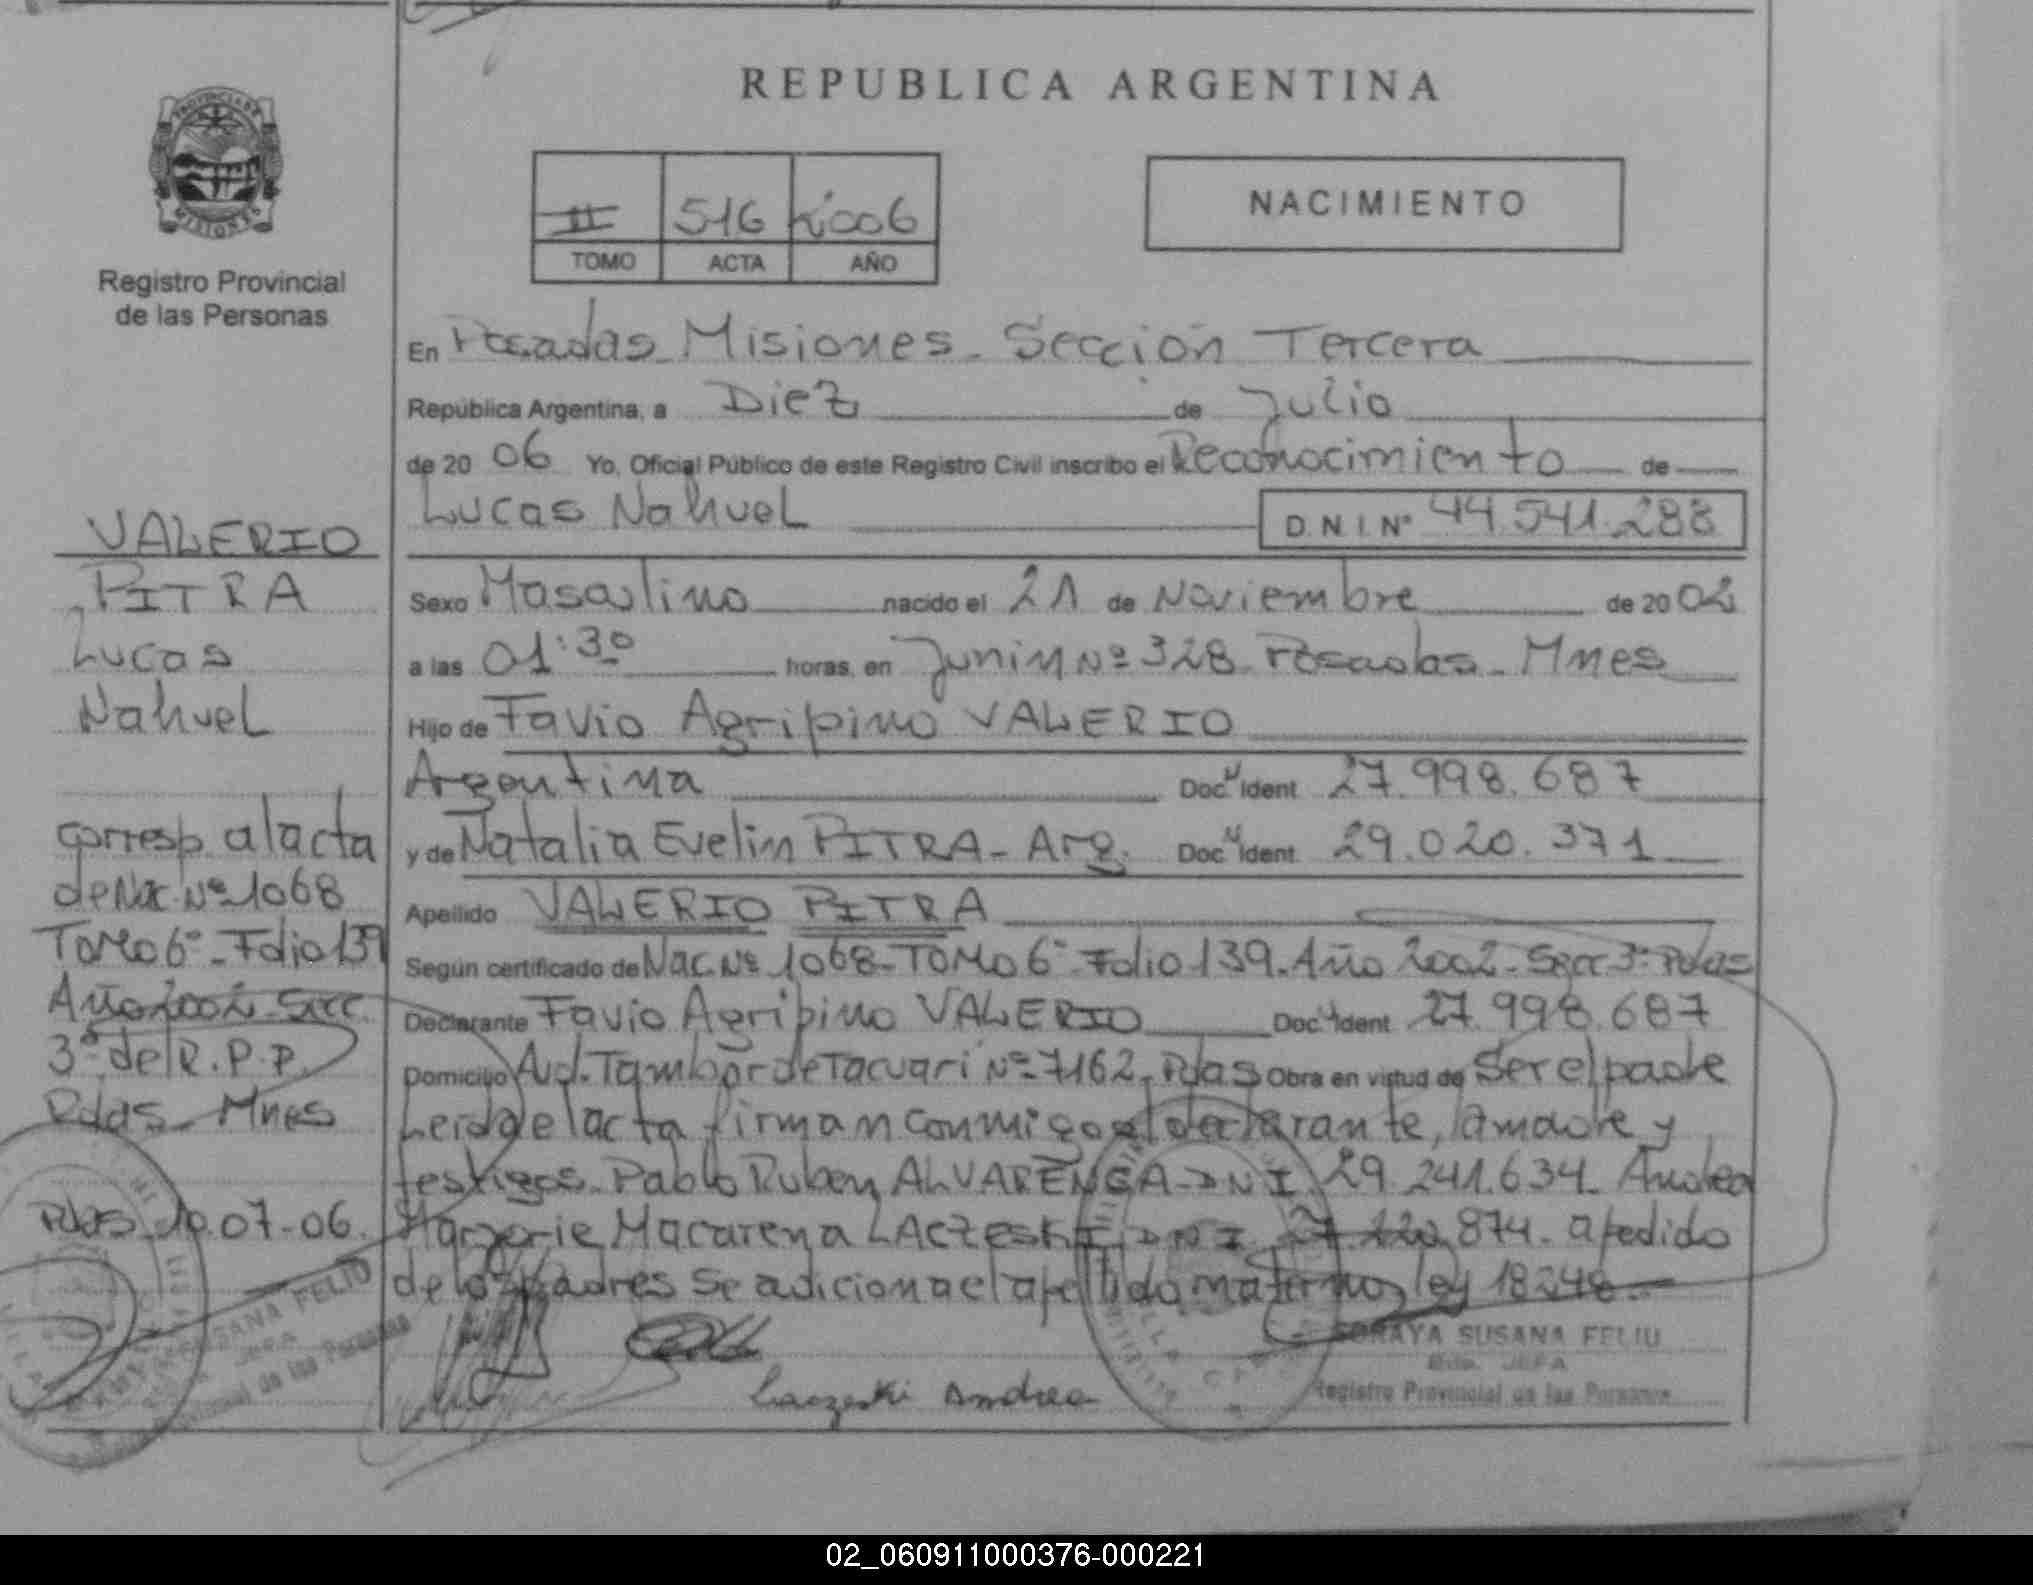 REPUBLICA ARGENTINA
PROVINCIA DE
MISIONES
Registro Provincial
de las Personas
II 516 2006
TOMO ACTA AÑO
NACIMIENTO
En Posadas Misiones. Sección Tercera
República Argentina, a Diez de Julio
de 20 06 Yo, Oficial Público de este Registro Civil inscribo el Reconocimiento de
Lucas Nahuel D.N.I. Nº 44.541.288
Sexo Masculino nacido el 21 de Noviembre de 20 02
a las 01:30 horas, en Junin Nº 328. Posadas - Mnes
Hijo de Favio Agripino VALERIO
Argentina Doc Ident 27.998.687
y de Natalia Evelin PITRA - Arg. Doc Ident 29.020.371
Apellido VALERIO PITRA
Según certificado de Nac. Nº 1068 - TOMO 6º - Folio 139. Año 2002 - Secc 3ª Pdas
Declarante Favio Agripino VALERIO Doc Ident 27.998.687
Domicilio Avd. Tambor de Tacuari Nº 7162. Pdas Obra en virtud de Ser el padre
Leida el acta firman conmigo el declarante, la madre y
testigos. Pablo Ruben ALVARENGA - DNI 29.241.634. Andrea
Marjorie Macarena LACZESKI, DNI 874. a pedido
de los padres se adiciona el apellido materno, ley 18248.
Laczeski Andrea
SORAYA SUSANA FELIU
JEFA
Registro Provincial de las Personas
VALERIO
PITRA
Lucas
Nahuel
corresp. al acta
de Nac. Nº 1068
TOMO 6º - Folio 139
Año 2002 - Secc.
3ª del R.P.P.
Pdas - Mnes
Pdas 10-07-06.
SUSANA FELIU
JEFA
Provincial de las Personas
02_060911000376-000221